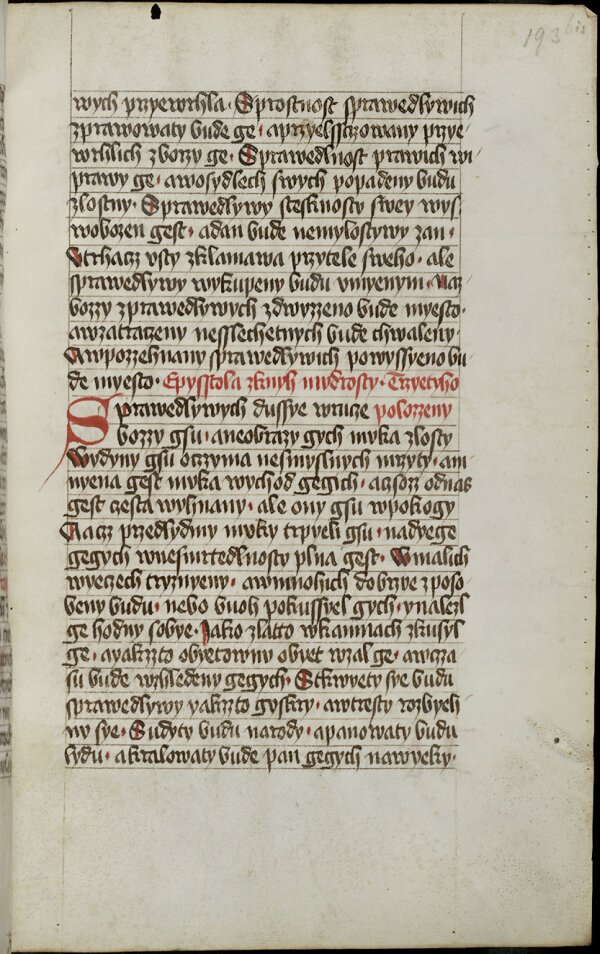 193 bis
wych przyewrhla · Sprostnost sprawedlywich
zprawowaty bude ge · aprzyelsstzowany przye
wrhlich zborzy ge · Sprawedlnost prawich wi
prawy ge · awosydlech swych popadeny budu
zlostny · Sprawedlywy stesknosty swey wys
wobozen gest · adan bude nemylostywy zan ·
Utrhacz usty zklamawa przytele sweho · ale
sprawedlywy wykupeny budu umyenym · Naz
bozzy zprawedlywych zdwyzzeno bude myesto ·
awzatraczeny nesslechetnych bude chwaleny ·
Awpozzehnany sprawedlywich powyssyeno bu
de myesto · Epysstola zknyh mudrosty · Trzetyho
Sprawedlywych dussye wrucze polozzeny
bozzy gsu · aneobrazy gych muka zlosty
Wydyny gsu oczyma nesmyslnych mrzyty · am
nyena gest muka wychod gegich · aczsozz odnas
gest czesta wyhnany · ale ony gsu wpokogy
Nacz przedlydmy muky trpyeli gsu · nadyege
gegych wnesmrtedlnosty plna gest · Wmalich
wyeczech tryznyeny · awmnohich dobrzye zposo
beny budu · nebo buoh pokussyel gych · ynalezl
ge hodny sobye · Jako zlatto wkamnach zkusyl
ge · ayakzto obyetowmu obyet wzal ge · awcza
su bude wzhledeny gegych · Stkwyety sye budu
sprawedlywy yakzto gyskry · awtresty rozbyeh
nu sye · Sudyty budu narody · apanowaty budu
lydu · akralowaty bude pan gegych nawyeky ·